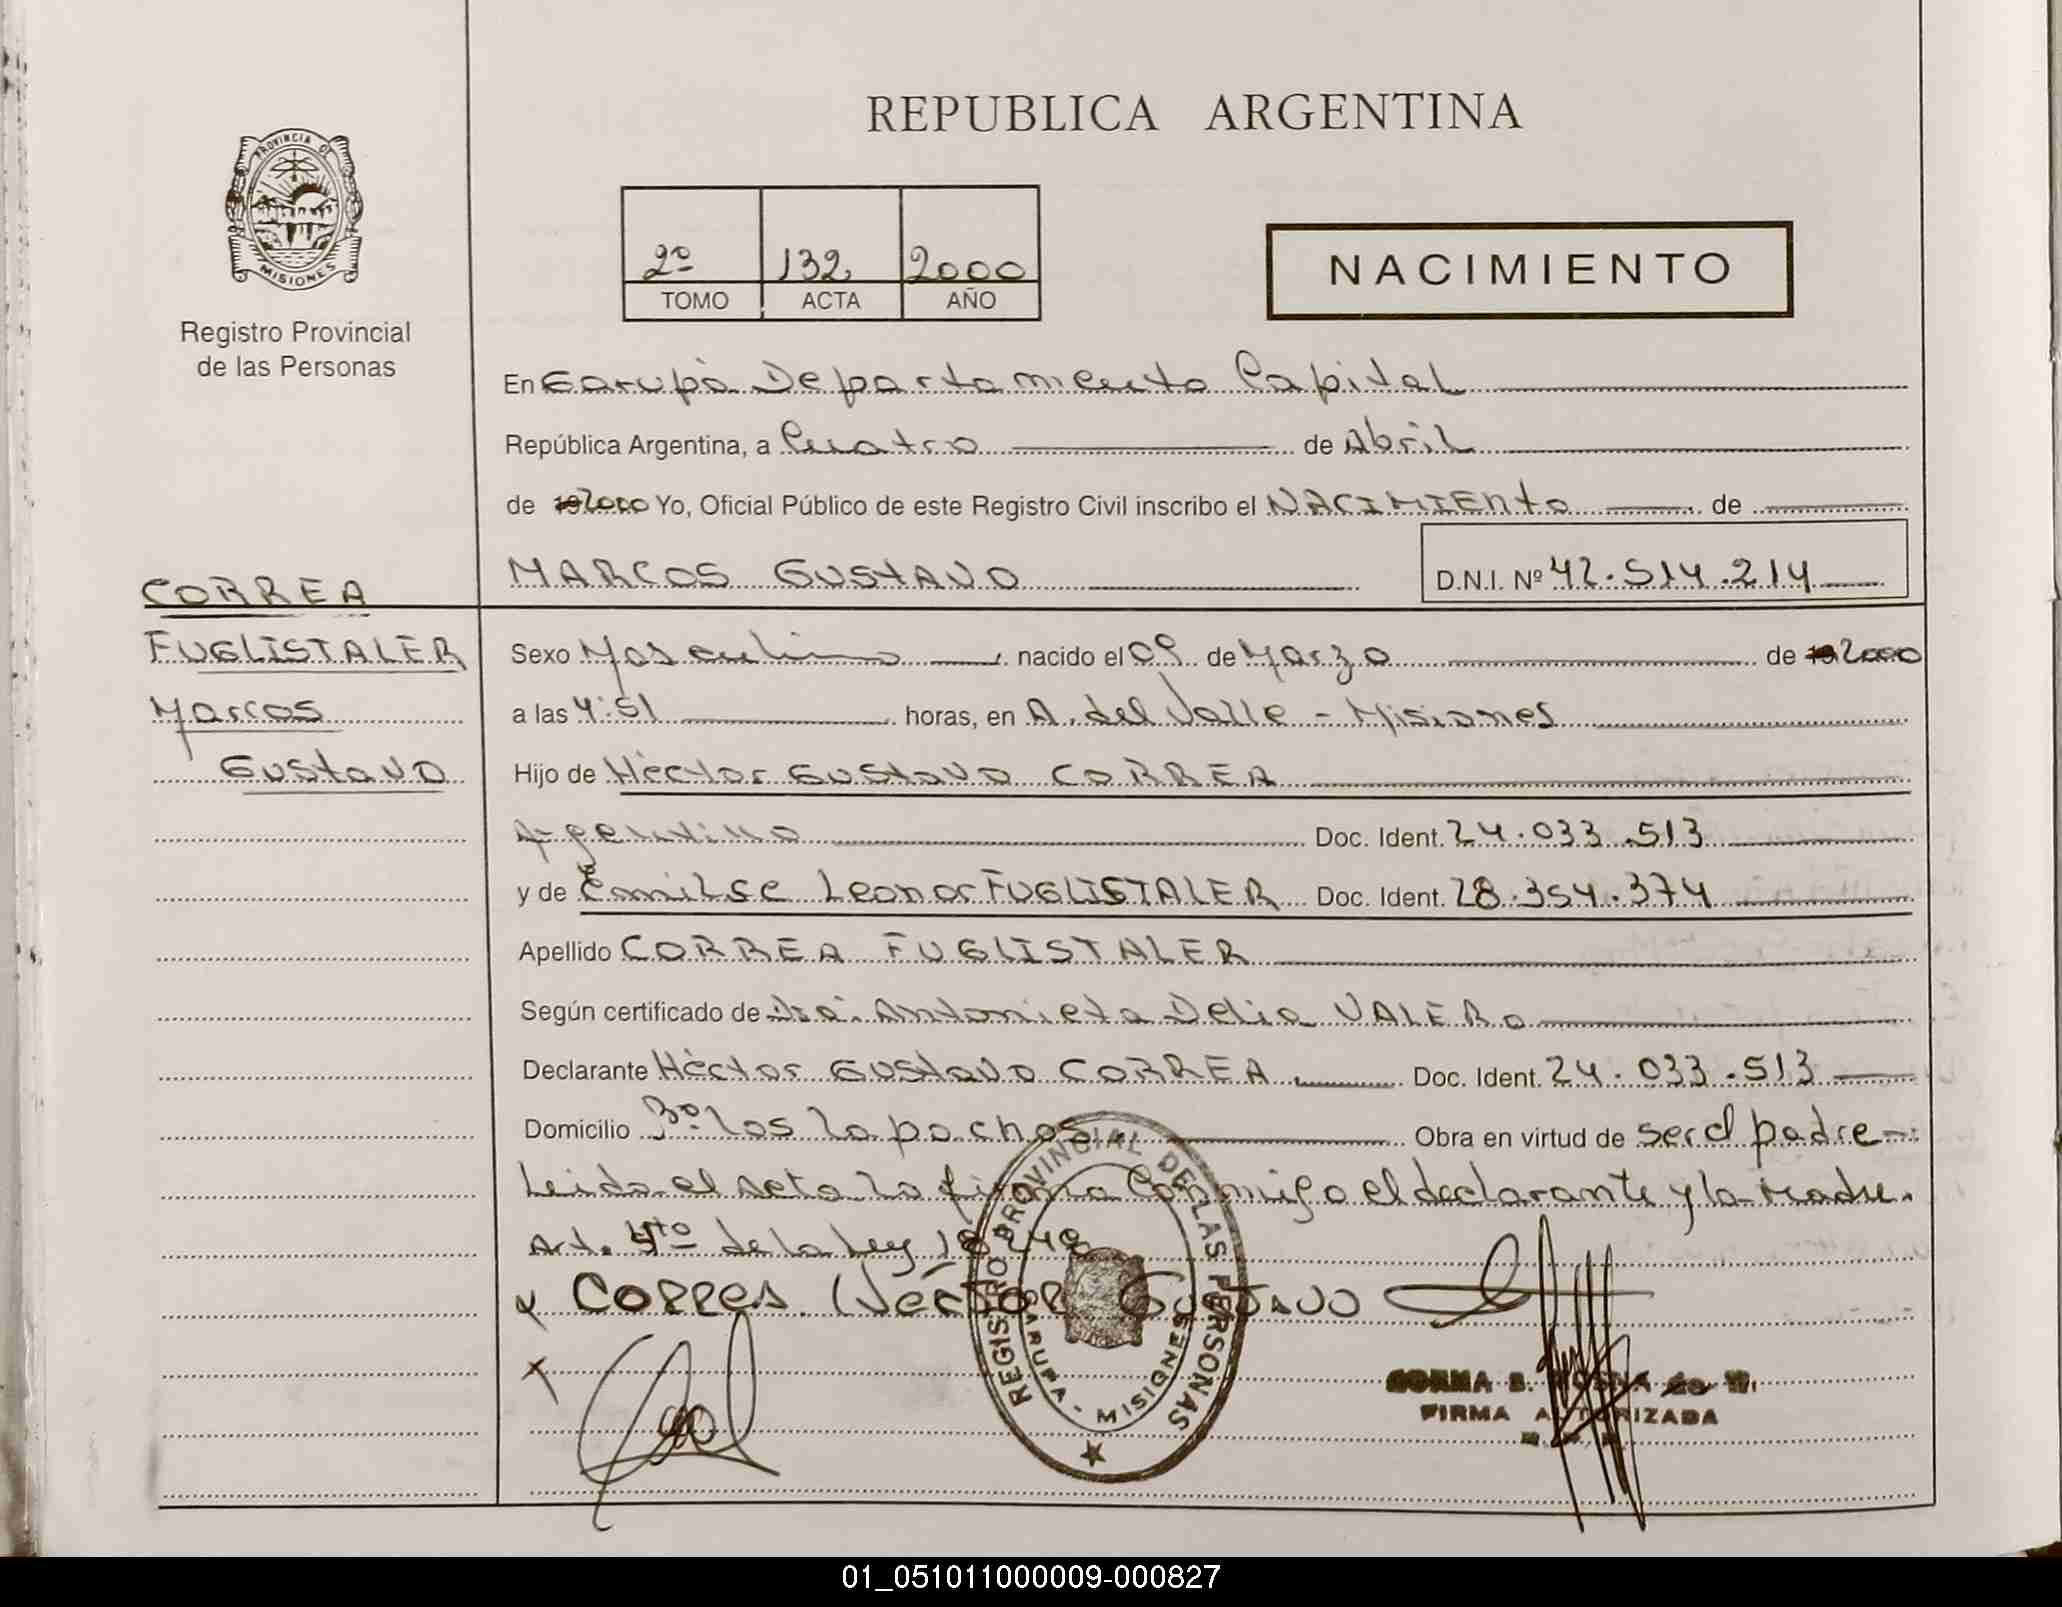 REPUBLICA ARGENTINA
PROVINCIA DE
MISIONES
Registro Provincial
de las Personas
2º 132 2000
TOMO ACTA AÑO
NACIMIENTO
En Garupá Departamento Capital
República Argentina, a Cuatro de Abril
de 2000 Yo, Oficial Público de este Registro Civil inscribo el NACIMIENto de
MARCOS GUStAVO
D.N.I. Nº 42.514.214
CORREA
FUGLISTALER
Marcos
GUStaVO
Sexo Masculino nacido el 09 de Marzo de 2000
a las 4:51 horas, en A. del Valle - Misiones
Hijo de Héctor GUStaVO CORREA
Argentino Doc. Ident. 24.033.513
y de Emilse Leonor FUGLISTALER Doc. Ident. 28.354.374
Apellido CORREA FUGLISTALER
Según certificado de Dra. Antonieta Delia VALERO
Declarante Héctor GUStaVO CORREA Doc. Ident. 24.033.513
Domicilio Bº los lapachos Obra en virtud de ser el padre-
Leida el acta la firma conmigo el declarante y la madre.
Art. 4to de la Ley 18248
CORREA Héctor GUSTAVO
REGISTRO PROVINCIAL DE LAS PERSONAS
GARUPA - MISIONES
FIRMA AUTORIZADA
01_051011000009-000827